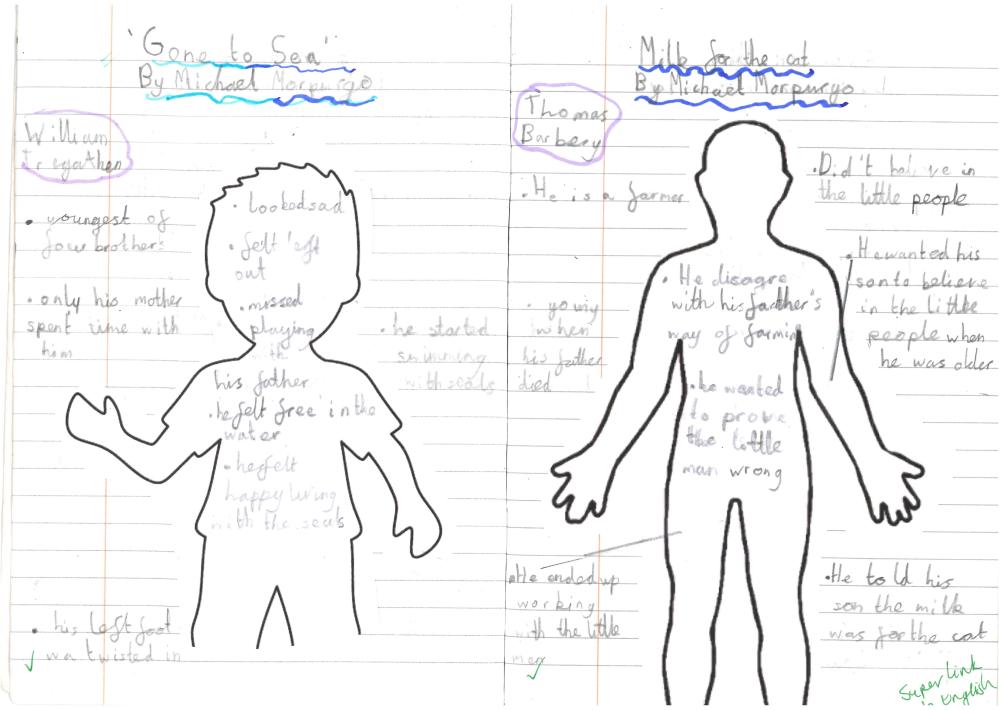 'Gone to Sea'
By Michael Morpurgo
William
Tregathen
• youngest of
four brothers
• only his mother
spent time with
him
• Looked sad
• felt left
out
• missed
playing
with
his father
• he felt free in the
water
• he felt
happy living
with the seals
• he started
swimming
with seals
• his left foot
wa twisted in
Milk for the cat
By Michael Morpurgo
Thomas
Barbery
• He is a farmer
• young
when
his father
died
• He disagre
with his farther's
way of farmin
• he wanted
to prove
the little
man wrong
• He ended up
working
with the little
men
• Did't in
the little people
• He wanted his
son to believe
in the little
people when
he was older
• He told his
son the milk
was for the cat
Super link
in English